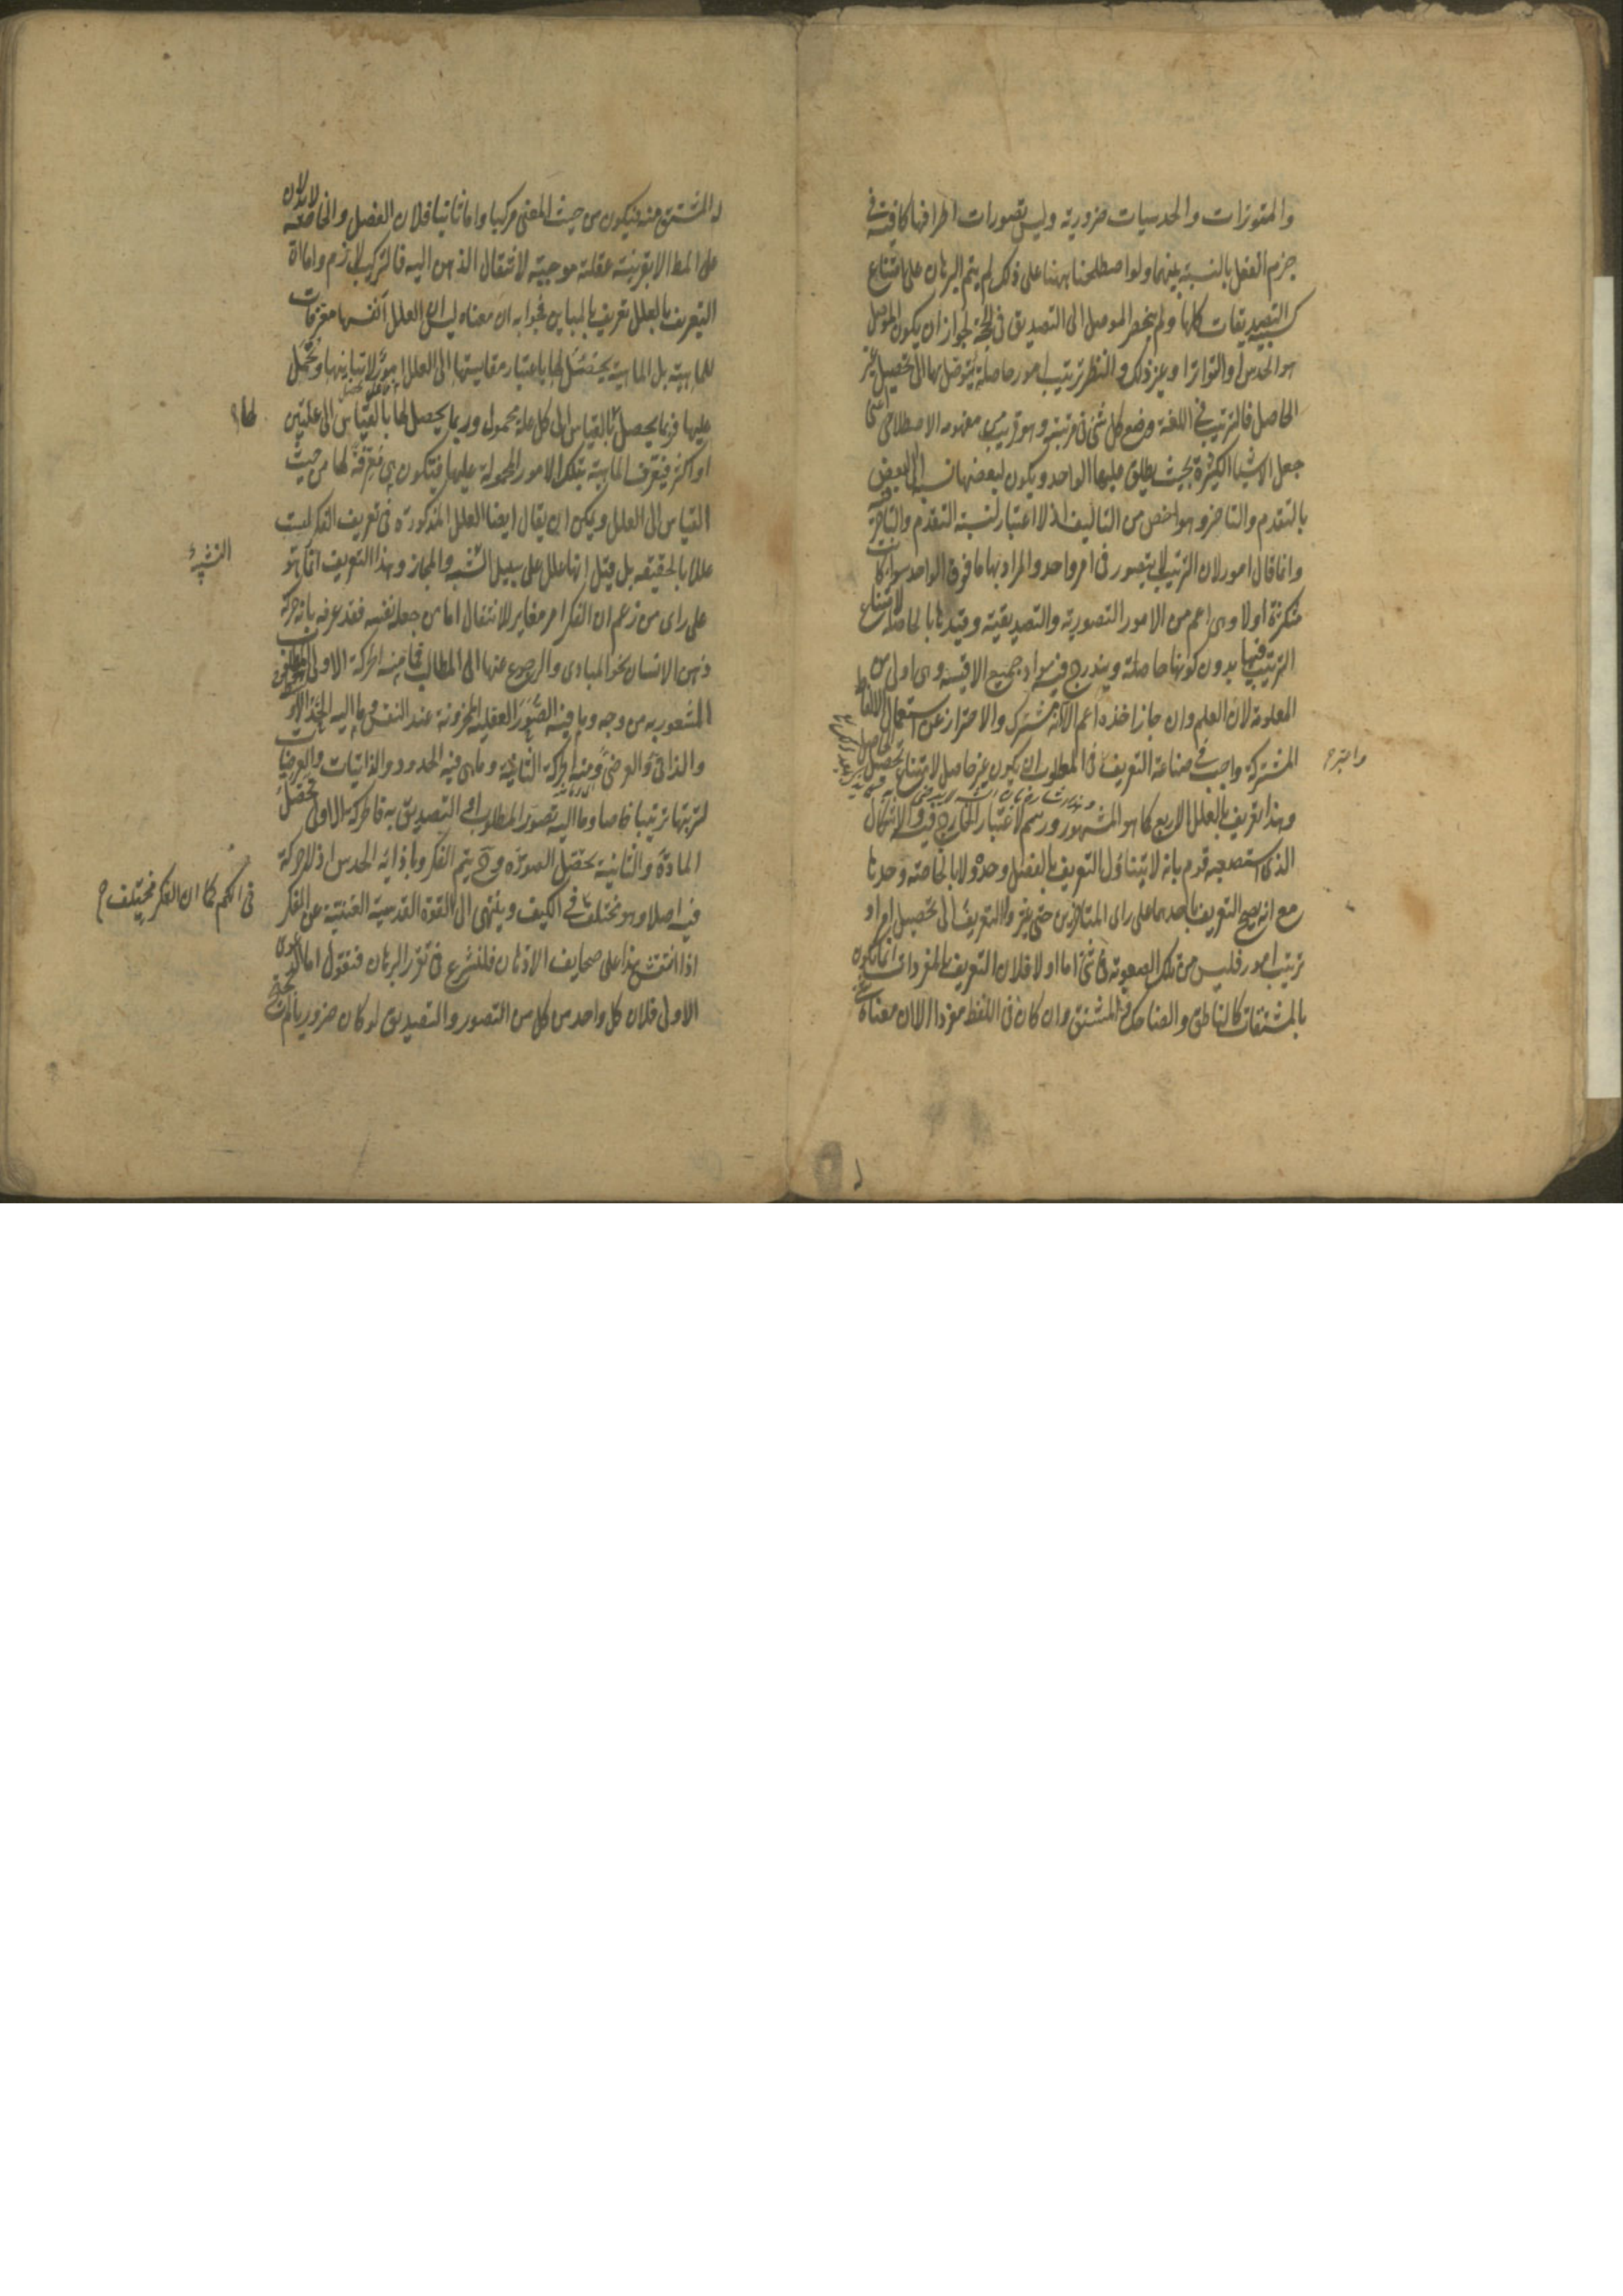 والمتوترات والحدسيات ضرورية وليس تصورات اطرافها كافية فى
جزم العقل بالنسبة بينهما ولو اصطلحنا ههنا على ذلك لم يتم البرهان على امتناع
كسبية التصديقات كلها ولم ينحصر الموصل الى التصديق فى الحجة لجواز ان يكون الموصل
هو الحدس او التواتر او غير ذلك والنظر ترتيب امور حاصلة يتوصل بها الى تحصيل غير
الحاصل فالترتيب فى اللغة وضع كل شئ فى مرتبته وهو قريب من مفهومه الاصطلاحى اعنى
جعل الاشياء الكثيرة بحيث يطلق عليها الواحد ويكون لبعضها نسبة الى البعض
بالتقدم والتاخر وهو اخص من التاليف اذ لا اعتبار لنسبة التقدم والتاخر فيه
وانما قال امور لان الترتيب لا يتصور فى امر واحد والمراد بها ما فوق الواحد سواء كانت
متكثرة او لا وهى اعم من الامور التصورية والتصديقية وقيدها بالحاصلة لامتناع
الترتيب فيها بدون كونها حاصلة ويندرج فيه مواد جميع الاقيسة وهى اولى من
المعلومة لان العلم وان جاز اخذه اعم الا انه مشترك والاحتراز عن استعمال الالفاظ
المشتركة واجب فى صناعة التعريف واعتبر فى المطلوب ان يكون غير حاصل لامتناع تحصيل الحاصل
وهذا تعريف بالعلل الاربع كما هو المشهور ورسم لاعتبار الخارج فيه والاشكال
الذى استصعبه قوم بانه لا يتناول التعريف بالفصل وحده ولا بالخاصة وحدها
مع انه يصح التعريف باحدهما على راى المتاخرين حتى غيروا التعريف الى تحصيل امر او
ترتيب امور فليس من تلك الصعوبة فى شئ اما اولا فلان التعريف بالمفردات انما يكون
بالمشتقات كالناطق والضاحك والمشتق وان كان فى اللفظ مفردا الا ان معناه شئ
له المشتق منه فيكون من حيث المعنى مركبا واما ثانيا فلان الفصل والخاصة لا يدلان
على المط الا بقرينة عقلية موجبة لانتقال الذهن اليه فالتركيب لازم واما ان
التعريف بالعلل تعريف بالمباين فجوابه ان معناه ليس ان العلل انفسها معرفات
للماهية بل الماهية يحصل لها باعتبار مقايستها الى العلل امور لا تباينها وتحمل
عليها فربما يحصل لها بالقياس الى كل علة محمول وربما يحصل لها بالقياس الى علتين
او اكثر فيعرف الماهية بتلك الامور المحمولة عليها فتكون هى معرفة لها من حيث
القياس الى العلل ويمكن ان يقال ايضا العلل المذكورة فى تعريف الفكر ليست
عللا بالحقيقة بل قيل انها علل على سبيل التشبيه والمجاز وهذا التعريف انما هو
على راى من زعم ان الفكر امر مغاير للانتقال اما من جعله نفسه فقد عرفه بانه حركة
ذهن الانسان نحو المبادى والرجوع عنها الى المطالب فما منه الحركة الاولى المطلوب
المشعور به من وجه وما هى فيه الصور العقلية المخزونة عند النفس وما اليه الحد الاوسط
والذاتى والعرضى ومنه الحركة الثانية وما هى فيه الحدود والذاتيات والعرضيات
لترتبها ترتيبا خاصا وما اليه تصور المطلوب او التصديق به فالحركة الاولى تحصل
المادة والثانية تحصل الصورة وح يتم الفكر وبازائه الحدس اذ لا حركة
فيه اصلا وهو مختلف فى الكيف وينتهى الى القوة القدسية الغنية عن الفكر
فى الكم كما ان الفكر مختلف
اذا انتقش هذا على صحايف الاذهان فلنشرع فى تقرير البرهان فنقول اما الدعوى
الاولى فلان كل واحد من كل من التصور والتصديق لو كان ضروريا لم نحتج